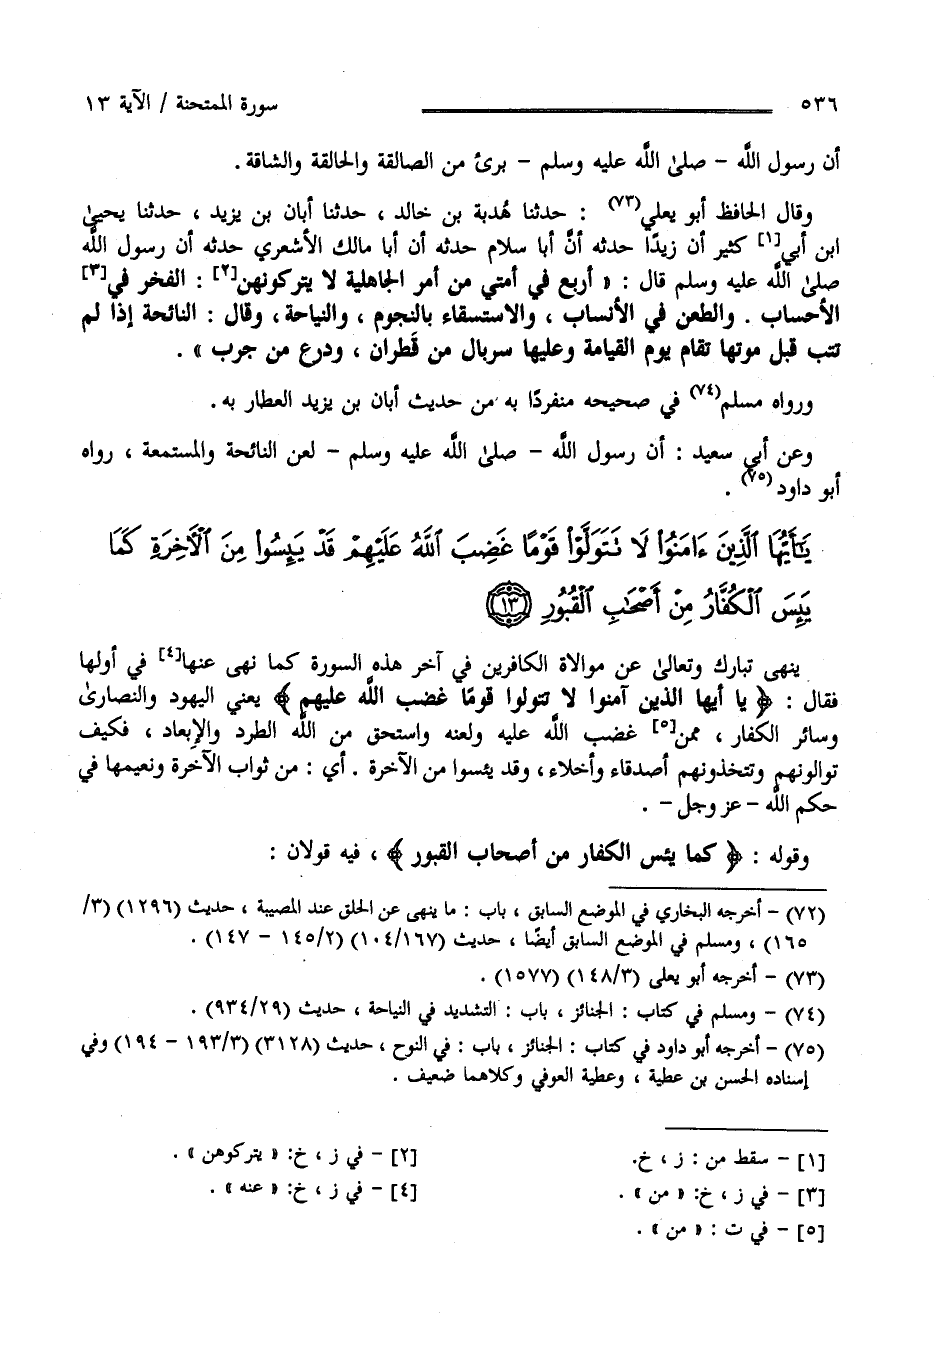 ٥٣٦ سورة الممتحنة / الآية ١٣
أن رسول اللَّه - صلىٰ اللَّه عليه وسلم - برئ من الصالقة والحالقة والشاقة .
وقال الحافظ أبو يعلي(٧٣) : حدثنا هُدبة بن خالد ، حدثنا أبان بن يزيد ، حدثنا يحيىٰ
ابن أبي[١] كثير أن زيدًا حدثه أنَّ أبا سلام حدثه أن أبا مالك الأشعري حدثه أن رسول اللَّه
صلىٰ اللَّه عليه وسلم قال : « أربع في أمتي من أمر الجاهلية لا يتركونهن[٢] : الفخر في[٣]
الأحساب . والطعن في الأنساب ، والاستسقاء بالنجوم ، والنياحة، وقال : النائحة إذا لم
تتب قبل موتها تقام يوم القيامة وعليها سربال من قَطران ، ودرع من جرب » .
ورواه مسلم(٧٤) في صحيحه منفردًا به من حديث أبان بن يزيد العطار به .
وعن أبي سعيد : أن رسول اللَّه - صلىٰ اللَّه عليه وسلم - لعن النائحة والمستمعة ، رواه
أبو داود(٧٥) .
يَٰٓأَيُّهَا ٱلَّذِينَ ءَامَنُوا۟ لَا تَتَوَلَّوْا۟ قَوْمًا غَضِبَ ٱللَّهُ عَلَيْهِمْ قَدْ يَئِسُوا۟ مِنَ ٱلْءَاخِرَةِ كَمَا
يَئِسَ ٱلْكُفَّارُ مِنْ أَصْحَٰبِ ٱلْقُبُورِ ١٣
ينهى تبارك وتعالىٰ عن موالاة الكافرين في آخر هذه السورة كما نهى عنها[٤] في أولها
فقال : ﴿ يا أيها الذين آمنوا لا تتولوا قومًا غضب اللَّه عليهم ﴾ يعني اليهود والنصارىٰ
وسائر الكفار ، ممن[٥] غضب اللَّه عليه ولعنه واستحق من اللَّه الطرد والإبعاد ، فكيف
توالونهم وتتخذونهم أصدقاء وأخلاء، وقد يئسوا من الآخرة . أي : من ثواب الآخرة ونعيمها في
حكم اللَّه - عز وجل - .
وقوله : ﴿ كما يئس الكفار من أصحاب القبور ﴾ ، فيه قولان :
(٧٢) - أخرجه البخاري في الموضع السابق ، باب : ما ينهى عن الحلق عند المصيبة ، حديث (١٢٩٦) (٣/
١٦٥) ، ومسلم في الموضع السابق أيضًا ، حديث (١٠٤/١٦٧) (١٤٥/٢ - ١٤٧) .
(٧٣) - أخرجه أبو يعلى (١٤٨/٣) (١٥٧٧) .
(٧٤) - ومسلم في كتاب : الجنائز ، باب : التشديد في النياحة ، حديث (٩٣٤/٢٩) .
(٧٥) - أخرجه أبو داود في كتاب : الجنائز ، باب : في النوح ، حديث (٣١٢٨) (١٩٣/٣ - ١٩٤) وفي
إسناده الحسن بن عطية ، وعطية العوفي وكلاهما ضعيف .
[١] - سقط من : ز ، خ. [٢] - في ز ، خ: « يتركوهن » .
[٣] - في ز ، خ: « من » . [٤] - في ز ، خ: « عنه » .
[٥] - في ت : « من » .